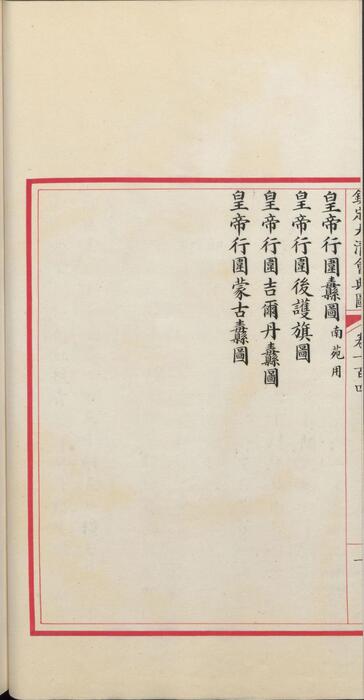 欽定大清會典圖 卷一百四 一
皇帝行圍纛圖南苑用
皇帝行圍後護旗圖
皇帝行圍吉爾丹纛圖
皇帝行圍蒙古纛圖